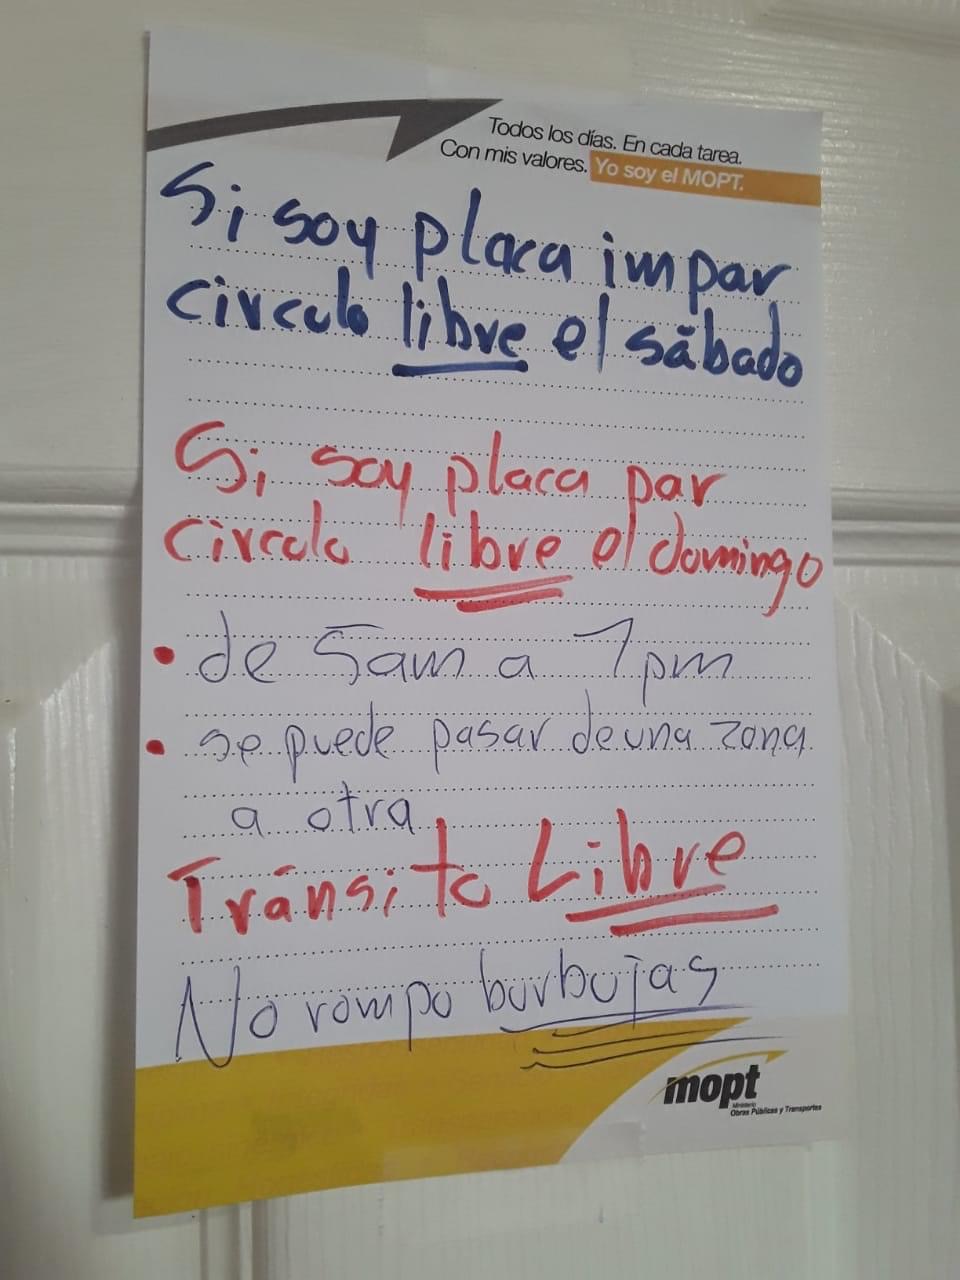 Todos los días. En cada tarea.
Con mis valores. Yo soy el MOPT.
Si soy placa impar
circulo libre el sábado
Si soy placa par
circulo libre el domingo
• de 5am a 7pm
• se puede pasar de una zona
a otra
Tránsito Libre
No rompo burbujas
mopt
Ministerio
Obras Públicas y Transportes